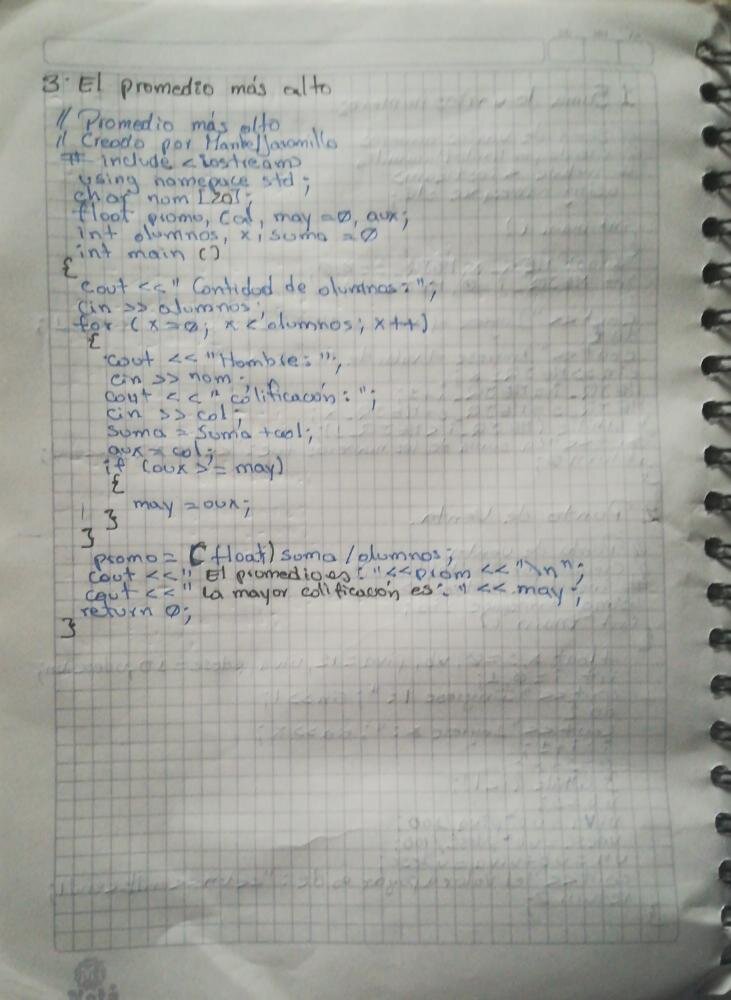 3. El promedio más alto
// Promedio más alto
// Creado por Jaramillo
# include <iostream>
using namepace std;
char nom [20];
float promo, cal, may =0, aux;
int alumnos, x, suma =0
int main ()
{
cout <<" Cantidad de alumnos: ";
cin >> alumnos;
for (x=0; x < alumnos; x++)
{
cout << "Nombre: ";
cin >> nom;
cout << " calificación: ";
cin >> cal;
suma = suma + cal;
aux = cal;
if (aux >= may)
{
may = aux;
}
}
promo = (float) suma / alumnos;
cout <<" El promedio es: "<<prom << "\n";
cout <<" La mayor calificación es: " << may;
return 0;
}